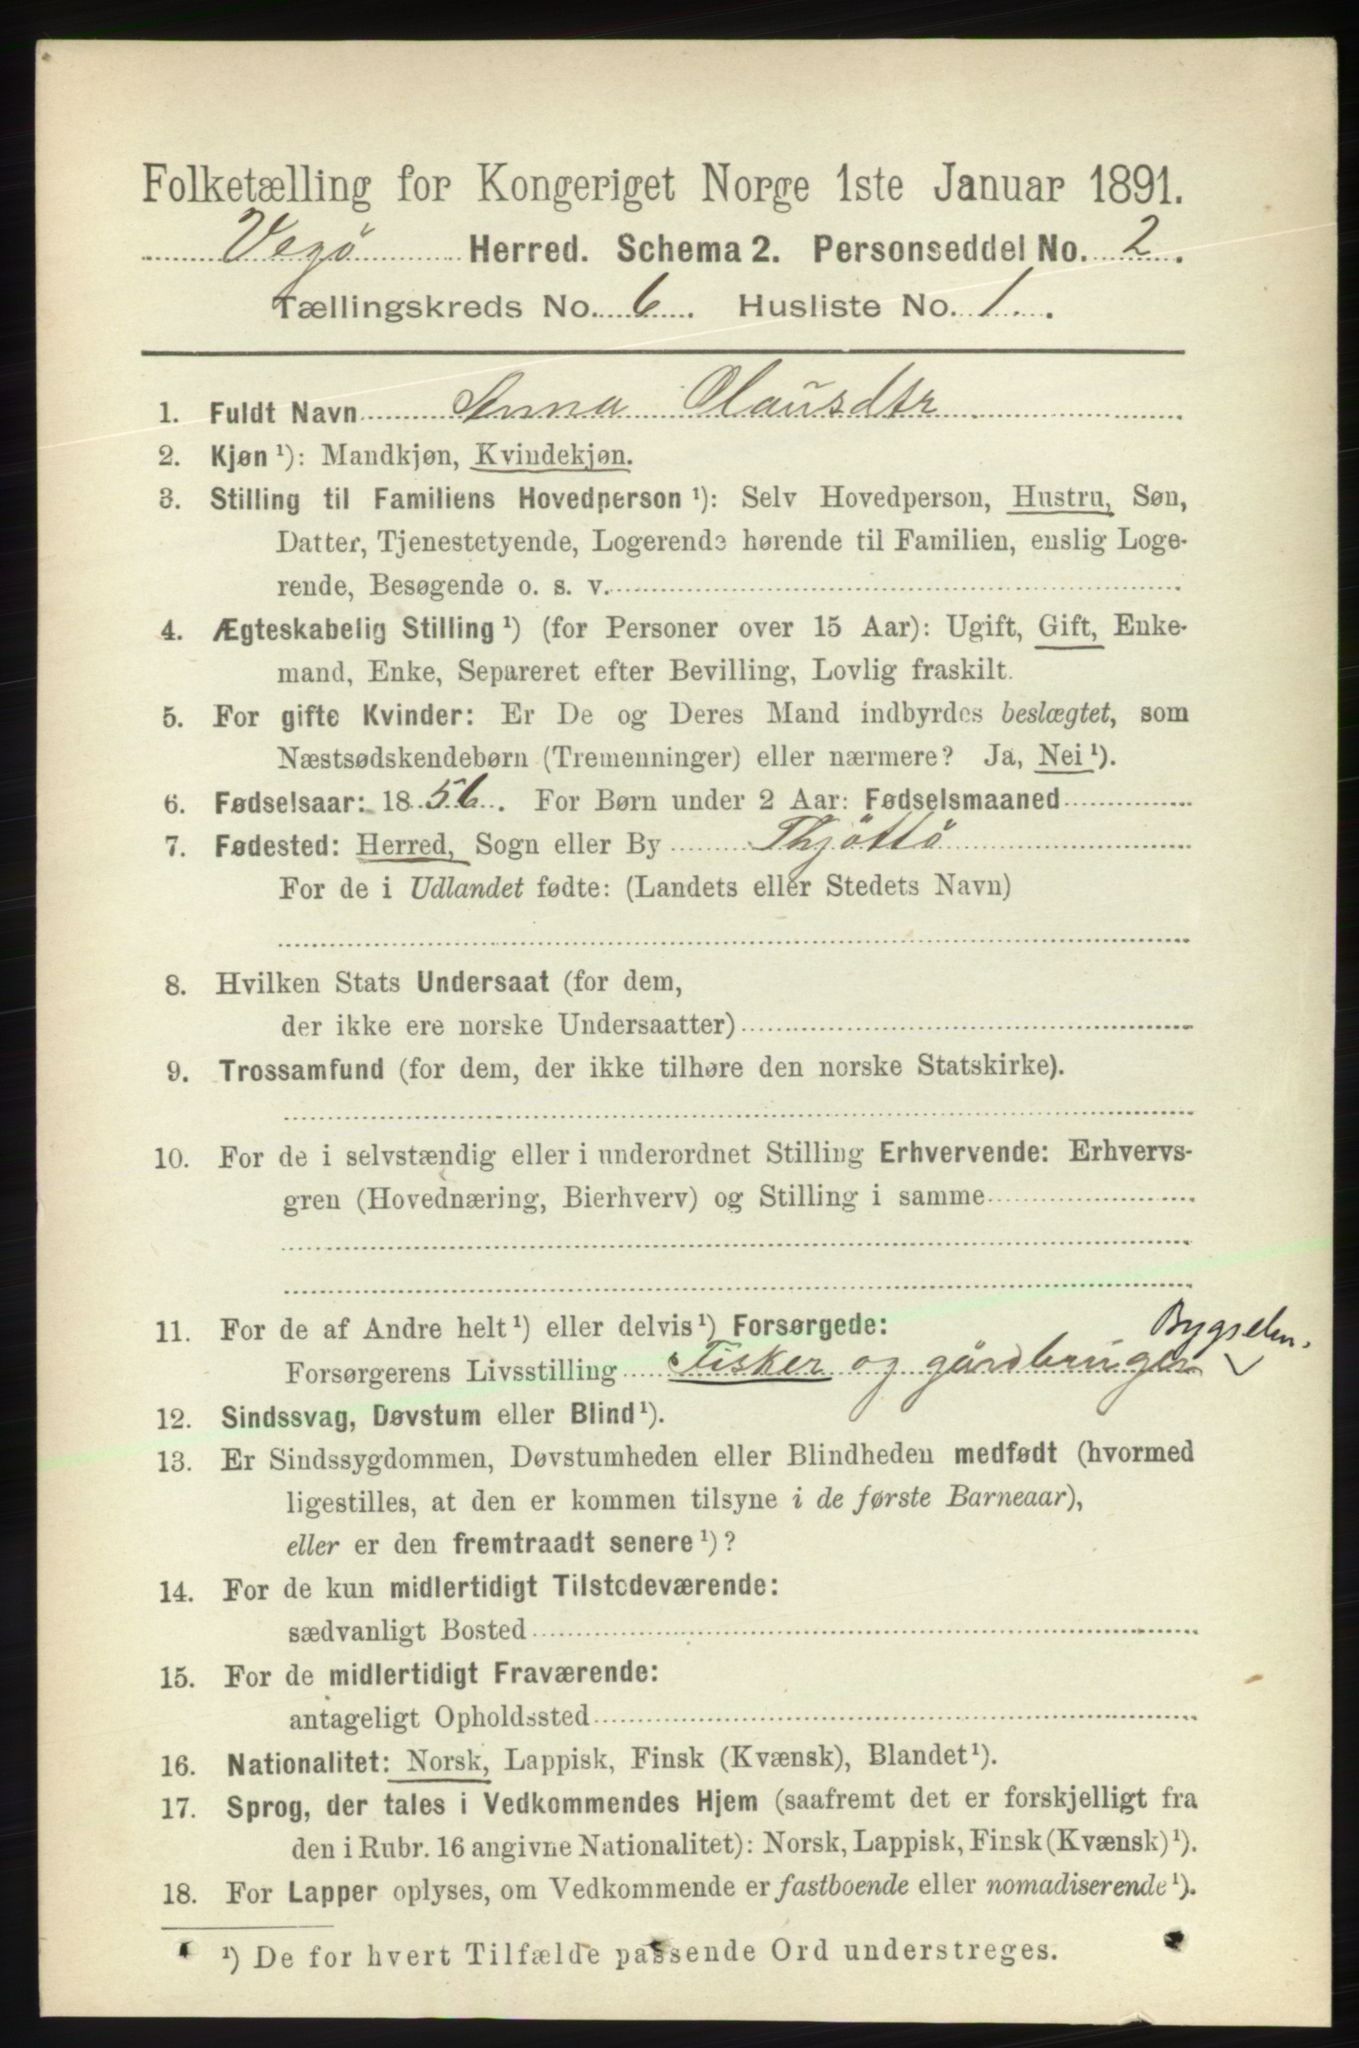 Folketælling for Kongeriget Norge 1ste Januar 1891.
Vegø Herred. Schema 2. Personseddel No. 2.
Tællingskreds No. 6. Husliste No. 1.
1. Fuldt Navn Anna Clausdtr
2. Kjøn ¹): Mandkjøn, Kvindekjøn.
3. Stilling til Familiens Hovedperson ¹): Selv Hovedperson, Hustru, Søn,
Datter, Tjenestetyende, Logerende hørende til Familien, enslig Loge-
rende, Besøgende o. s. v.
4. Ægteskabelig Stilling ¹) (for Personer over 15 Aar): Ugift, Gift, Enke-
mand, Enke, Separeret efter Bevilling, Lovlig fraskilt.
5. For gifte Kvinder: Er De og Deres Mand indbyrdes beslægtet, som
Næstsødskendebørn (Tremenninger) eller nærmere? Ja, Nei ¹).
6. Fødselsaar: 1856. For Børn under 2 Aar: Fødselsmaaned
7. Fødested: Herred, Sogn eller By Thjöttö
For de i Udlandet fødte: (Landets eller Stedets Navn)
8. Hvilken Stats Undersaat (for dem,
der ikke ere norske Undersaatter)
9. Trossamfund (for dem, der ikke tilhøre den norske Statskirke).
10. For de i selvstændig eller i underordnet Stilling Erhvervende: Erhvervs-
gren (Hovednæring, Bierhverv) og Stilling i samme
11. For de af Andre helt ¹) eller delvis ¹) Forsørgede:
Bygselm.
Forsørgerens Livsstilling Fisker og gårdbruger
12. Sindssvag, Døvstum eller Blind ¹).
13. Er Sindssygdommen, Døvstumheden eller Blindheden medfødt (hvormed
ligestilles, at den er kommen tilsyne i de første Barneaar),
eller er den fremtraadt senere ¹)?
14. For de kun midlertidigt Tilstedeværende:
sædvanligt Bosted
15. For de midlertidigt Fraværende:
antageligt Opholdssted
16. Nationalitet: Norsk, Lappisk, Finsk (Kvænsk), Blandet ¹).
17. Sprog, der tales i Vedkommendes Hjem (saafremt det er forskjelligt fra
den i Rubr. 16 angivne Nationalitet): Norsk, Lappisk, Finsk (Kvænsk) ¹).
18. For Lapper oplyses, om Vedkommende er fastboende eller nomadiserende ¹).
¹) De for hvert Tilfælde passende Ord understreges.